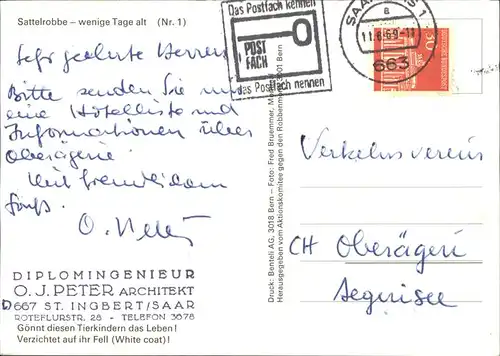 Sattelrobbe – wenige Tage alt (Nr. 1)
Sehr geehrte Herren
Bitte senden Sie mir
eine Hotelliste und
Informationen über
Oberägeri
Mit freundlichem
Gruß.
O.
DIPLOMINGENIEUR
O. J. PETER ARCHITEKT
D 667 ST. INGBERT/SAAR
ROTEFLURSTR. 28 - TELEFON 3078
Gönnt diesen Tierkindern das Leben!
Verzichtet auf ihr Fell (White coat)!
Das Postfach kennen
POST
FACH
das Postfach nennen
a
11.6.69-17
663
30
Druck: Benteli AG, 3018 Bern – Foto: Fred Bruemmer,
Herausgegeben vom Aktionskomitee gegen den Robbenmord, 3001 Bern
Verkehrsverein
CH Oberägeri
Aegerisee